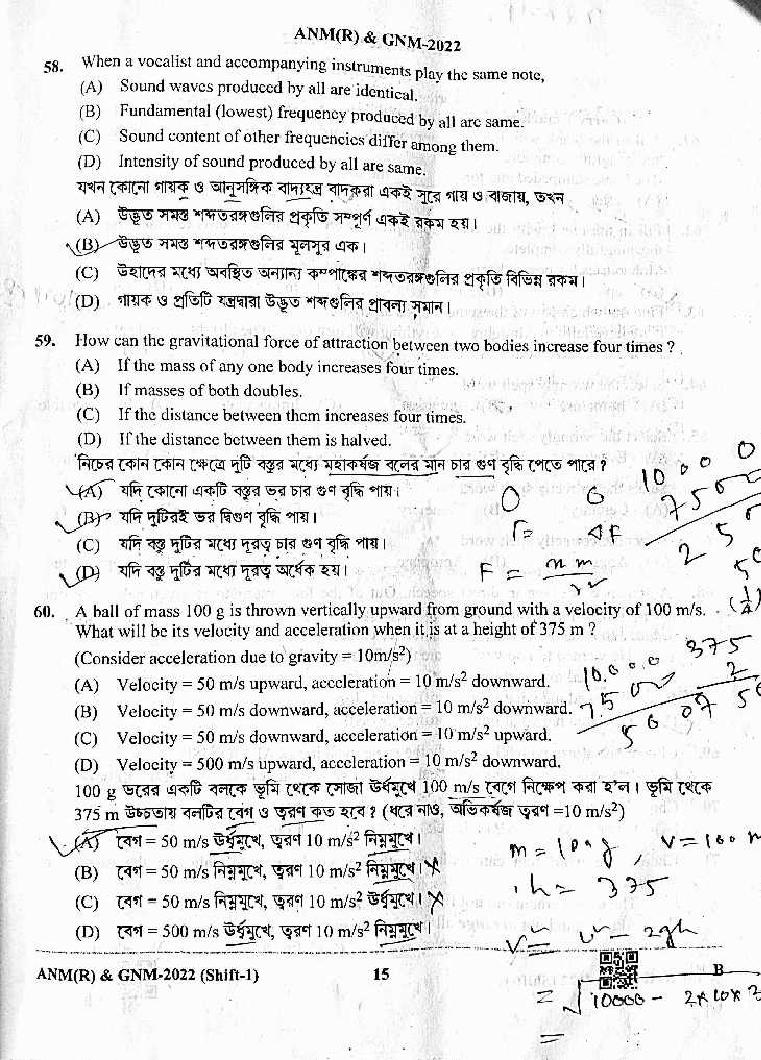 ANM(R) & GNM-2022
58. When a vocalist and accompanying instruments play the same note,
(A) Sound waves produced by all are identical.
(B) Fundamental (lowest) frequency produced by all are same.
(C) Sound content of other frequencies differ among them.
(D) Intensity of sound produced by all are same.
যখন কোনো গায়ক ও আনুসঙ্গিক বাদ্যযন্ত্র বাদকরা একই সুরে গায় ও বাজায়, তখন
(A) উদ্ভূত সমস্ত শব্দতরঙ্গগুলির প্রকৃতি সম্পূর্ণ একই রকম হয়।
(B) উদ্ভূত সমস্ত শব্দতরঙ্গগুলির মূলসুর এক।
(C) উহাদের মধ্যে অবস্থিত অন্যান্য কম্পাঙ্কের শব্দতরঙ্গগুলির প্রকৃতি বিভিন্ন রকম।
(D) গায়ক ও প্রতিটি যন্ত্রদ্বারা উদ্ভূত শব্দগুলির প্রাবল্য সমান।
59. How can the gravitational force of attraction between two bodies increase four times ?
(A) If the mass of any one body increases four times.
(B) If masses of both doubles.
(C) If the distance between them increases four times.
(D) If the distance between them is halved.
নিচের কোন কোন ক্ষেত্রে দুটি বস্তুর মধ্যে মহাকর্ষজ বলের মান চার গুণ বৃদ্ধি পেতে পারে ?
(A) যদি কোনো একটি বস্তুর ভর চার গুণ বৃদ্ধি পায়।
(B) যদি দুটিরই ভর দ্বিগুণ বৃদ্ধি পায়।
(C) যদি বস্তু দুটির মধ্যে দূরত্ব চার গুণ বৃদ্ধি পায়।
(D) যদি বস্তু দুটির মধ্যে দূরত্ব অর্ধেক হয়।
1000 0
750
250
F = 4F
F =
60. A ball of mass 100 g is thrown vertically upward from ground with a velocity of 100 m/s.
What will be its velocity and acceleration when it is at a height of 375 m ?
(Consider acceleration due to gravity = 10m/s²)
(A) Velocity = 50 m/s upward, acceleration = 10 m/s² downward.
(B) Velocity = 50 m/s downward, acceleration = 10 m/s² downward.
(C) Velocity = 50 m/s downward, acceleration = 10 m/s² upward.
(D) Velocity = 500 m/s upward, acceleration = 10 m/s² downward.
375
2
100 g ভরের একটি বলকে ভূমি থেকে সোজা উর্ধমুখে 100 m/s বেগে নিক্ষেপ করা হ'ল। ভূমি থেকে
375 m উচ্চতায় বলটির বেগ ও ত্বরণ কত হবে ? (ধরে নাও, অভিকর্ষজ ত্বরণ =10 m/s²)
(A) বেগ = 50 m/s উর্ধমুখে, ত্বরণ 10 m/s² নিম্নমুখে।
(B) বেগ = 50 m/s নিম্নমুখে, ত্বরণ 10 m/s² নিম্নমুখে।
(C) বেগ = 50 m/s নিম্নমুখে, ত্বরণ 10 m/s² উর্ধমুখে।
(D) বেগ = 500 m/s উর্ধমুখে, ত্বরণ 10 m/s² নিম্নমুখে।
m = 100 g, v = 100 m
h = 375
v² = u² - 2gh
ANM(R) & GNM-2022 (Shift-1) 15 B
= √10000 - 2×10×3
=